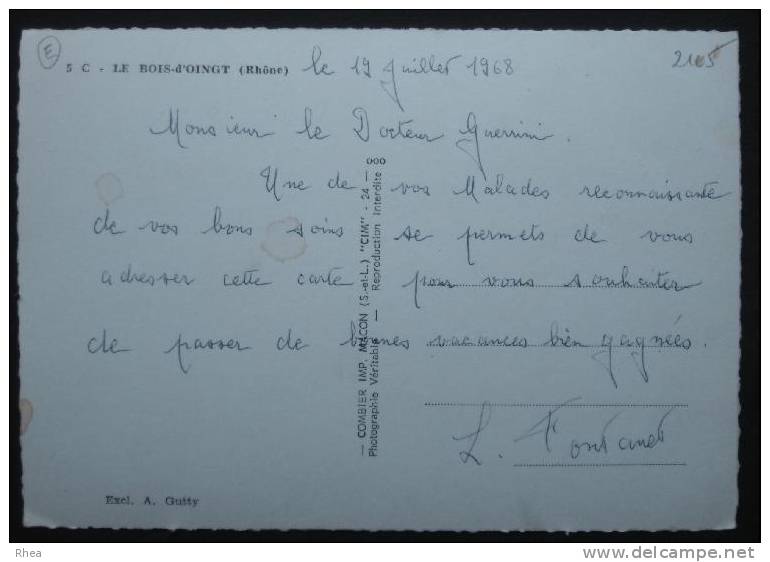 E
5 C - LE BOIS-d'OINGT (Rhône) le 19 Juillet 1968
Monsieur le Docteur Guerrini.
Une de vos Malades reconnaissante
de vos bons soins se permets de vous
adresser cette carte pour vous souhaiter
de passer de bonnes vacances bien gagnées.
L. Fontanet
— COMBIER IMP. MACON (S.-et-L.) "CIM" - 24 — 000
Photographie Véritable — Reproduction Interdite
Excl. A. Guitty
Rhea
http://www.delcampe.net